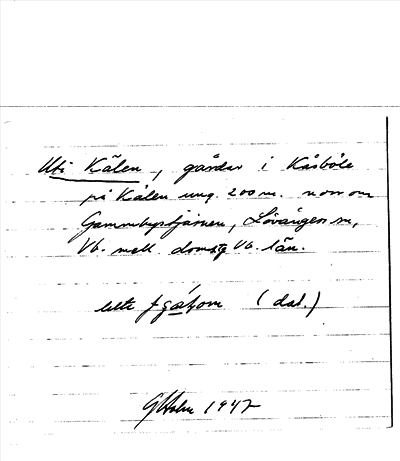 Uti Kålen, gårdar i Kåsböle
på Kålen ung. 200 m. norr om
Gammbystjärnen, Lövångers sn,
Vb. mell. domsg Vb. län.
(dat.)
GHolm 1947